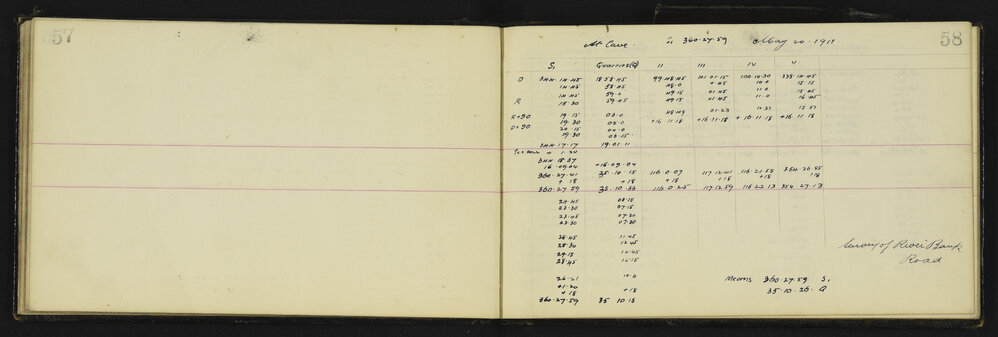 57
58
At Cave S₁ 360·27·59 May 20·1911
S₁ Quarries(Q) II III IV V
D 344·14·45 18·58·45 99·48·45 101·01·15 100·10·30 338·14·45
14·45 58·45 48·0 0·45 10·0 15·15
14·45 59·0 49·15 01·45 11·0 15·45
R 15·30 59·45 49·15 01·45 11·0 16·45
48·49 01·23 10·37 15·37
R+90 19·15 03·0 +16·11·18 +16·11·18 +16·11·18 +16·11·18
D+90 19·30 03·0
20·15 04·0
19·30 03·15
344·17·17 19·01·11
+ 1·20
344·18·37
16·09·04 +16·09·04
360·27·41 35·10·15 116·0·07 117·12·41 116·21·55 354·26·55
+18 +18 +18 +18 +18 +18
360·27·59 35·10·33 116·0·25 117·12·59 116·22·13 354·27·13
24·45 08·15
23·30 07·15
23·45 07·30
23·30 07·30
26·45 11·45
28·30 12·45
29·15 12·45
28·45 12·15
Survey of River Bank
Road
26·21 10·0
+1·20
+18 +18
360·27·59 35·10·18
Means 360·27·59 S₁
35·10·26 Q